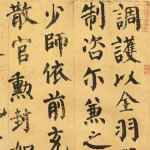 調護以全羽
制咨尔兼之
少師依前充
散官勳封如